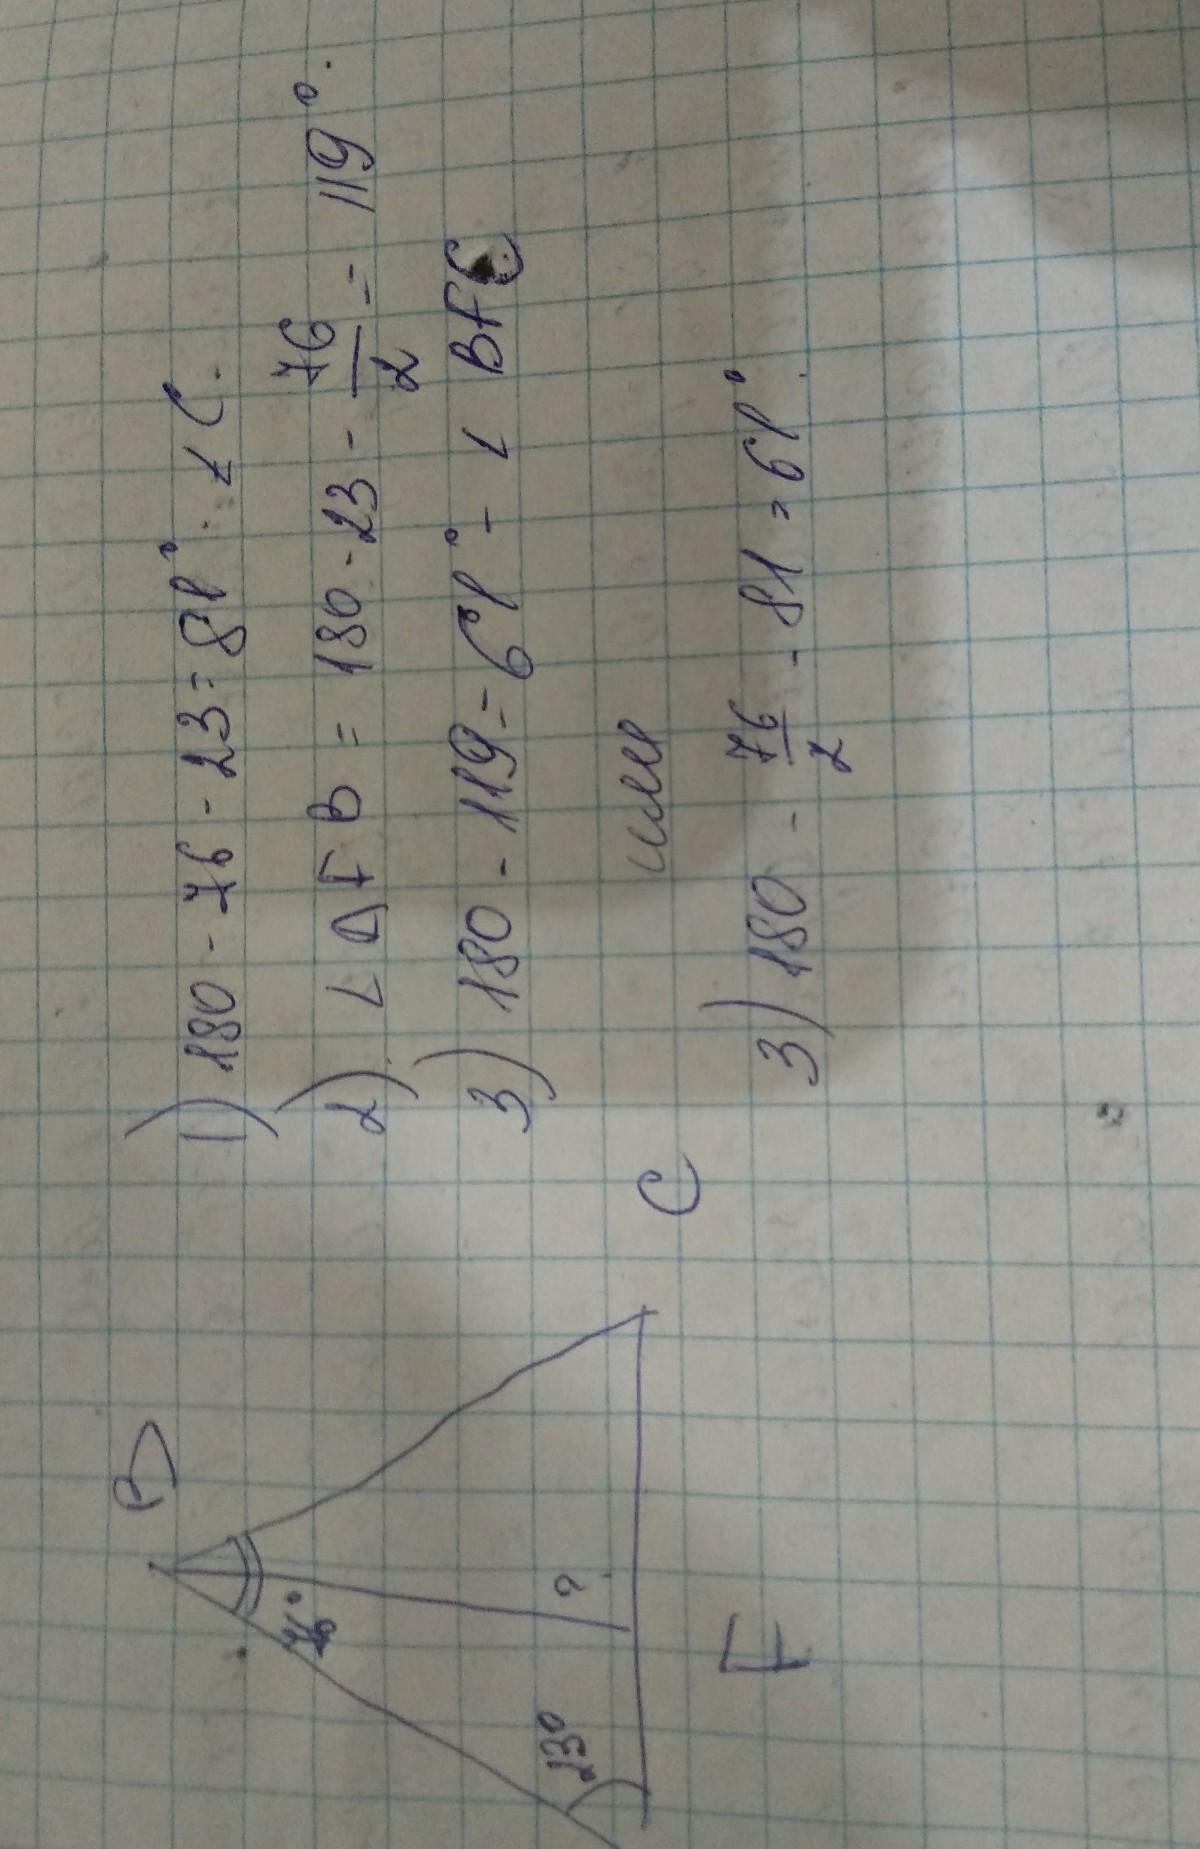 B
76°
23°
?
F
C
1) 180 - 76 - 23 = 81° ∠C.
2) ∠AFB = 180 - 23 - 76/2 = 119°.
3) 180 - 119 = 61° - ∠BFC
или
3) 180 - 76/2 - 81 = 61°